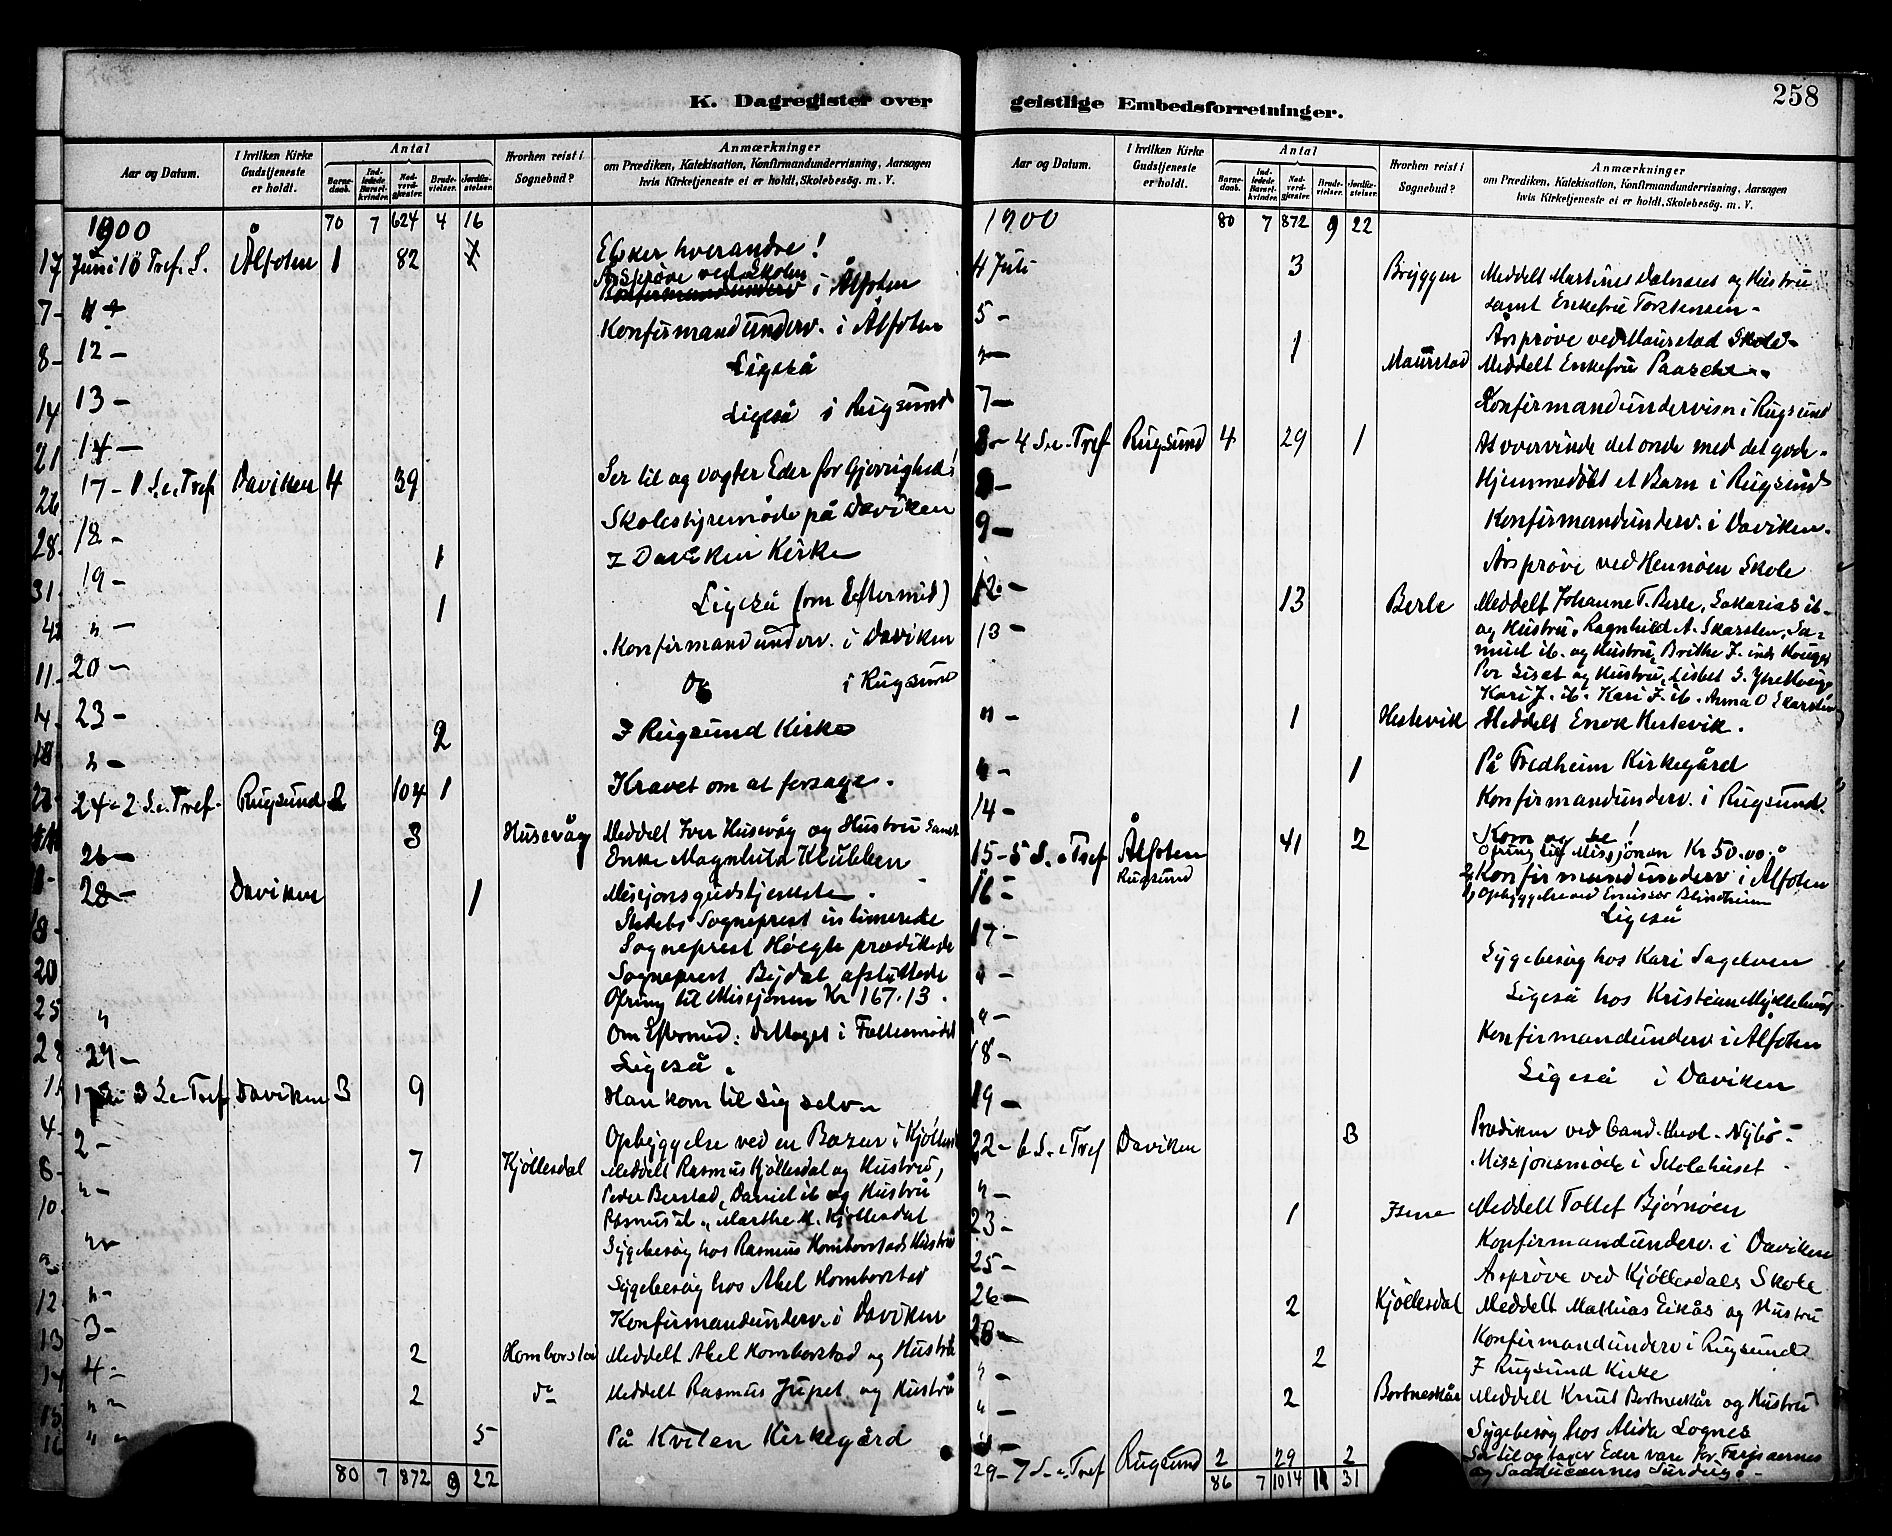 258
K. Dagregister over
Aar og Datum.
I hvilken Kirke Gudstjeneste er holdt.
Antal
Barnedaab.
Indledede Barselkvinder.
Nadverdgjæster.
Brudevielser.
Jordfæstelser.
Hvorhen reist i Sognebud?
Anmærkninger
om Prædiken, Katekisation, Konfirmandundervisning, Aarsagen
hvis Kirketjeneste ei er holdt, Skolebesög. m. V.
1900 70 7 624 4 16
Juni 10 Tref. S. Ålfoten 1 82 Elsker hverandre!
Årsprøve ved Skolen
i Ålfoten
Konfirmandunderv. i Ålfoten
12 - Ligeså
13 - Ligeså i Rugsund
14 -
17 - 1 S. e. Tref Daviken 4 39 Ser til og vogter Eder for Gjerrighed!
Skolestyremøde på Daviken
18 - 1 I Daviken Kirke
19 - 1 Ligeså (om Eftermid)
" - Konfirmandunderv. i Daviken
20 - Do i Rugsund
23 - 2 I Rugsund Kirke
" -
24 - 2 S. e. Tref. Rugsund 2 104 1 Kravet om at forsage.
3 Husevåg Meddelt Iver Husevåg og Hustru samt
26 - Enke Magnhild Klubben
28 - Daviken 1 Missjonsgudstjeneste.
Stedets Sogneprest intimerede
Sogneprest Høegh prædikede
Sogneprest Bejdal afsluttede
Ofring til Missjonen Kr 167.13.
" Om Eftermid: Deltaget i Fællesmødet
29 - Ligeså.
1 Juli 3 S. e. Tref Daviken 3 9 Han kom til sig selv
2 - Opbyggelse ved en Bazar i Kjøllesdal
7 Kjøllesdal Meddelt Rasmus Kjøllesdal og Hustru,
" - Peder Berstad, Daniel ib og Hustru
Rasmus ib, Marthe M. Kjøllesdal
" - Sygebesøg hos Rasmus Homborstads Hustru
" - Sygebesøg hos Abel Homborstad
3 - Konfirmandunderv. i Daviken
4 - 2 Homborstad Meddelt Abel Homborstad og Hustru
" - 2 do Meddelt Rasmus Jupet og Hustru
" - 5 På Kvilen Kirkegård
80 7 872 9 22
geistlige Embedsforretninger.
Aar og Datum.
I hvilken Kirke Gudstjeneste er holdt.
Antal
Barnedaab.
Indledede Barselkvinder.
Nadverdgjæster.
Brudevielser.
Jordfæstelser.
Hvorhen reist i Sognebud?
Anmærkninger
om Prædiken, Katekisation, Konfirmandundervisning, Aarsagen
hvis Kirketjeneste ei er holdt, Skolebesög. m. V.
1900 80 7 872 9 22
4 Juli 3 Bryggen Meddelt Martines Dalsæus og Hustru
samt Enkefru Torstensen -
5 - Årsprøve ved Maurstad Skole -
" - 1 Maurstad Meddelt Enkefru Paasche
7 - Konfirmandundervisn i Rugsund
8 - 4 S. e. Tref Rugsund 4 29 1 At overvinde det onde med det gode.
Hjemmedøbt et Barn i Rugsund
9 - Konfirmandunderv. i Daviken.
Årsprøve ved Hennøen Skole
12 - 13 Berle Meddelt Johanne T. Berle, Sakarias ib.
13 - og Hustru, Ragnhild A. Skarsten, Sa-
muel ib. og Hustru, Brithe J. indr Hauge
Per Liset og Hustru, Lisbet S. Ytrehauge
Kari J. ib. Kari J. ib. Anna O Skarsten
" - 1 Hestevik Meddelt Enok Hestevik.
" - 1 På Fredheim Kirkegård
14 - Konfirmandunderv. i Rugsund.
Kom og se!
15 - 5 S. e Tref Ålfoten 41 2 Ofring til Missjonen Kr 50.00.
Rugsund
16 - 2) Konfirmandunderv i Ålfoten
1) Opbyggelse ved Emissær Blindheim
17 - Ligeså
" - Sygebesøg hos Kari Sagelven
" - Ligeså hos Kristian Myklebust
18 - Konfirmandunderv i Ålfoten
19 - Ligeså i Daviken
22 - 6 S. e Tref Daviken 3 Prediken ved Cand. theol. Nybø -
Missjonsmøde i Skolehuset
" - 1 Isene Meddelt Tollef Bjørnøen
23 - Konfirmandunderv. i Daviken
25 - Årsprøve ved Kjøllesdals Skole
26 - 2 Kjøllesdal Meddelt Mathias Eikås og Hustru
28 - Konfirmandunderv i Rugsund
" 2 I Rugsund Kirke
" - 2 Bortneskår Meddelt Knut Bortneskår og Hustru
" - Sygebesøg hos Alida Sognes
29 - 7 S. e Tref Rugsund 2 29 2 Se til og tager Eder vare for Farisæernes
og Sadducæernes Surdeig.
86 7 1014 11 31